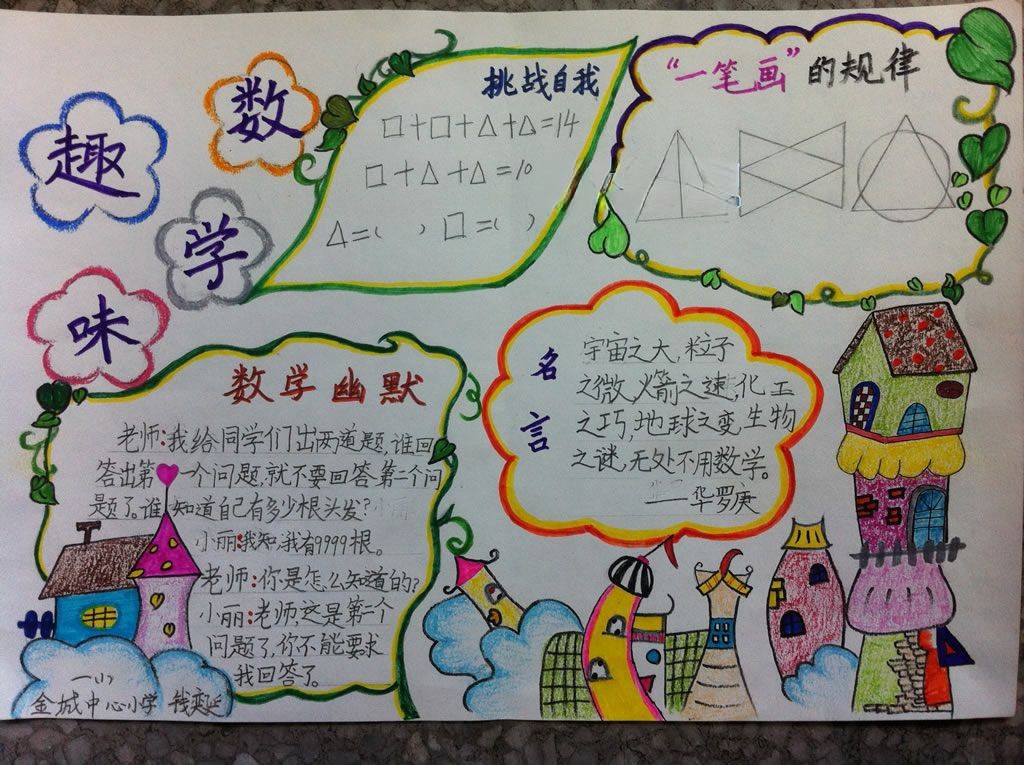 趣
数
学
味
挑战自我
□+□+△+△=14
□+△+△=10
△=( ) □=( )
“一笔画”的规律
数学幽默
老师:我给同学们出两道题,谁回
答出第一个问题,就不要回答第二个问
题了。谁知道自己有多少根头发?
小丽:我知,我有9999根。
老师:你是怎么知道的?
小丽:老师这是第二个
问题了,你不能要求
我回答了。
名言
宇宙之大,粒子
之微,火箭之速,化工
之巧,地球之变,生物
之谜,无处不用数学。
——华罗庚
一(1)
金城中心小学